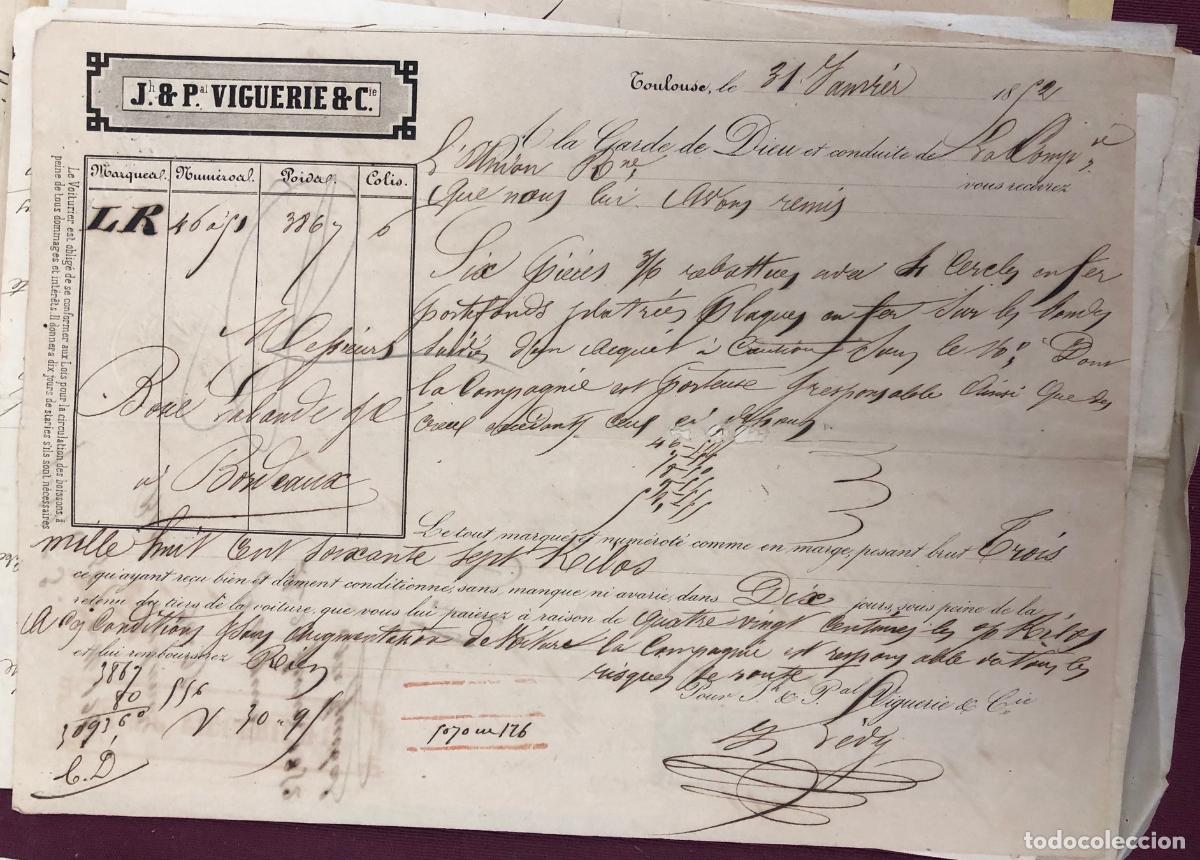 J.h & P.al VIGUERIE & C.ie
Toulouse, le 31 Janvier 1852
À la Garde de Dieu et conduite de La Comp.ie
L'Union
vous recevrez
Que nous lui avons remis
Marques. Numéros. Poids. Colis.
LR 46 à 51 3867 6
Messieurs
Lalande
à Bordeaux
Le Voiturier est obligé de se conformer aux Lois pour la circulation des boissons, à
peine de tous dommages et intérêts. Il donnera dix jours de staries s'ils sont nécessaires
Six pièces 3/6 rabattues avec 4 Cercles en fer
portefonds platrés plaques en fer sur les bondes
d'un acquit à Caution sous le N° Dont
la Compagnie est porteuse & responsable ainsi que des
creux
Le tout marqué et numéroté comme en marge, pesant brut Trois
mille huit cent soixante sept Kilos
ce qu'ayant reçu bien et dûment conditionné, sans manque ni avarie, dans Dix jours, sous peine de la
retenue du tiers de la voiture, que vous lui paierez à raison de Quatre vingt centimes les % Kilos
A Ces Conditions & sans augmentation de Voiture la Compagnie est responsable de tous les
risques de route
et lui rembourserez Rien
3867
80
309360
30 95
C. D
Pour J.h & P.al Viguerie & C.ie
todocoleccion